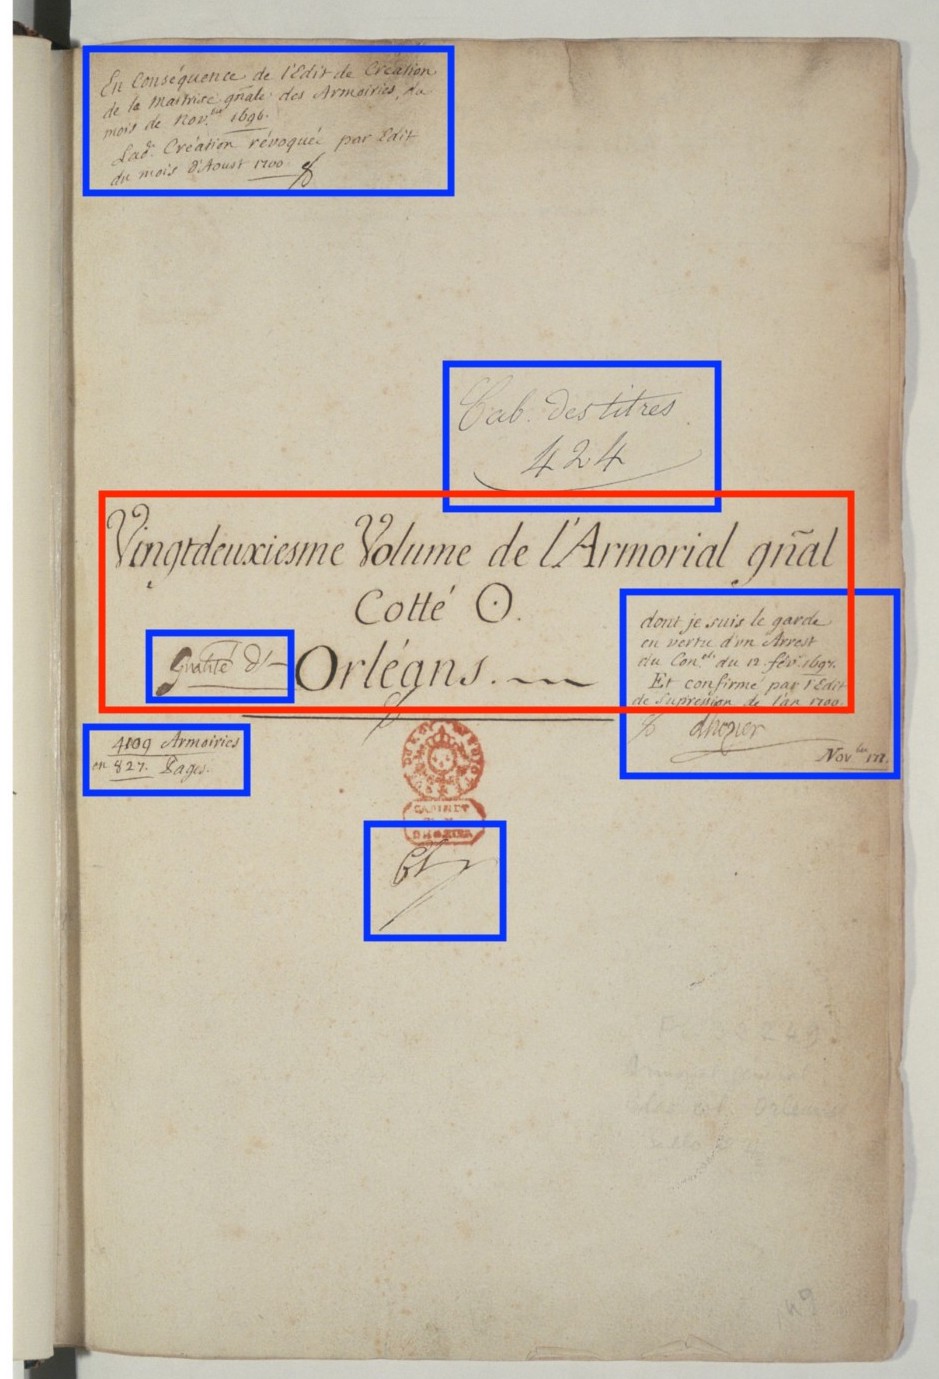 En Conséquence de l'Edit de Création
de la Maitrise gñale des Armoiries, du
mois de Nov.bre 1696.
Lad.e Création révoquée par Edit
du mois d'Aoust 1700.
Cab. des titres
424
Vingtdeuxiesme Volume de l'Armorial gñal
Cotté O.
dont je suis le garde
en vertu d'vn Arrest
du Con.el du 12. fév.r 1697.
Et confirmé par l'Edit
de Supression de l'an 1700.
gñalité d'-Orléans.
dhozier
Nov.bre
4109 Armoiries
en 827. Pages.
CABINET
DHOZIER
Orléans